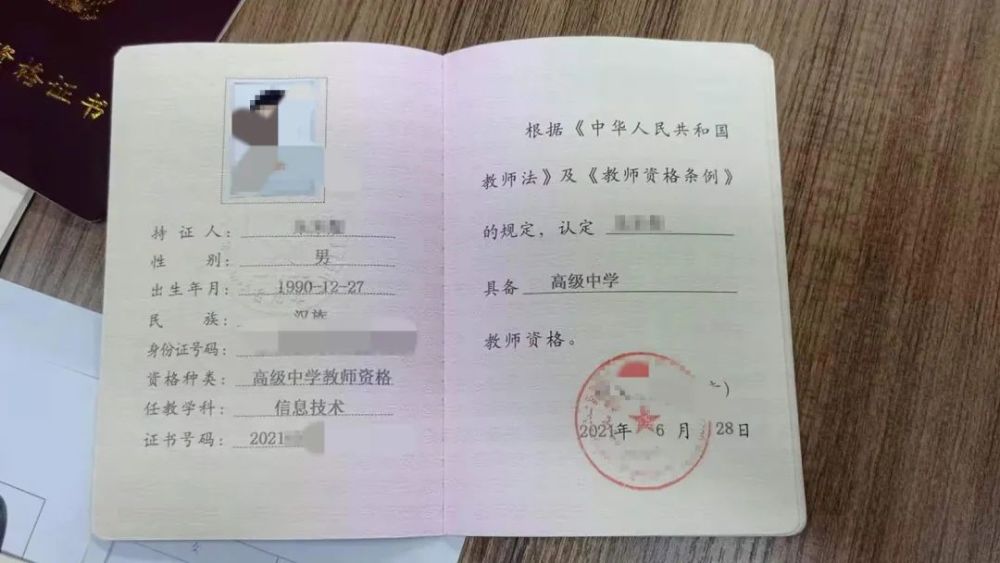 资格证书
持证人：
性别：男
出生年月：1990-12-27
民族：汉族
身份证号码：
资格种类：高级中学教师资格
任教学科：信息技术
证书号码：2021
根据《中华人民共和国
教师法》及《教师资格条例》
的规定，认定
具备 高级中学
教师资格。
2021年 6 月 28日